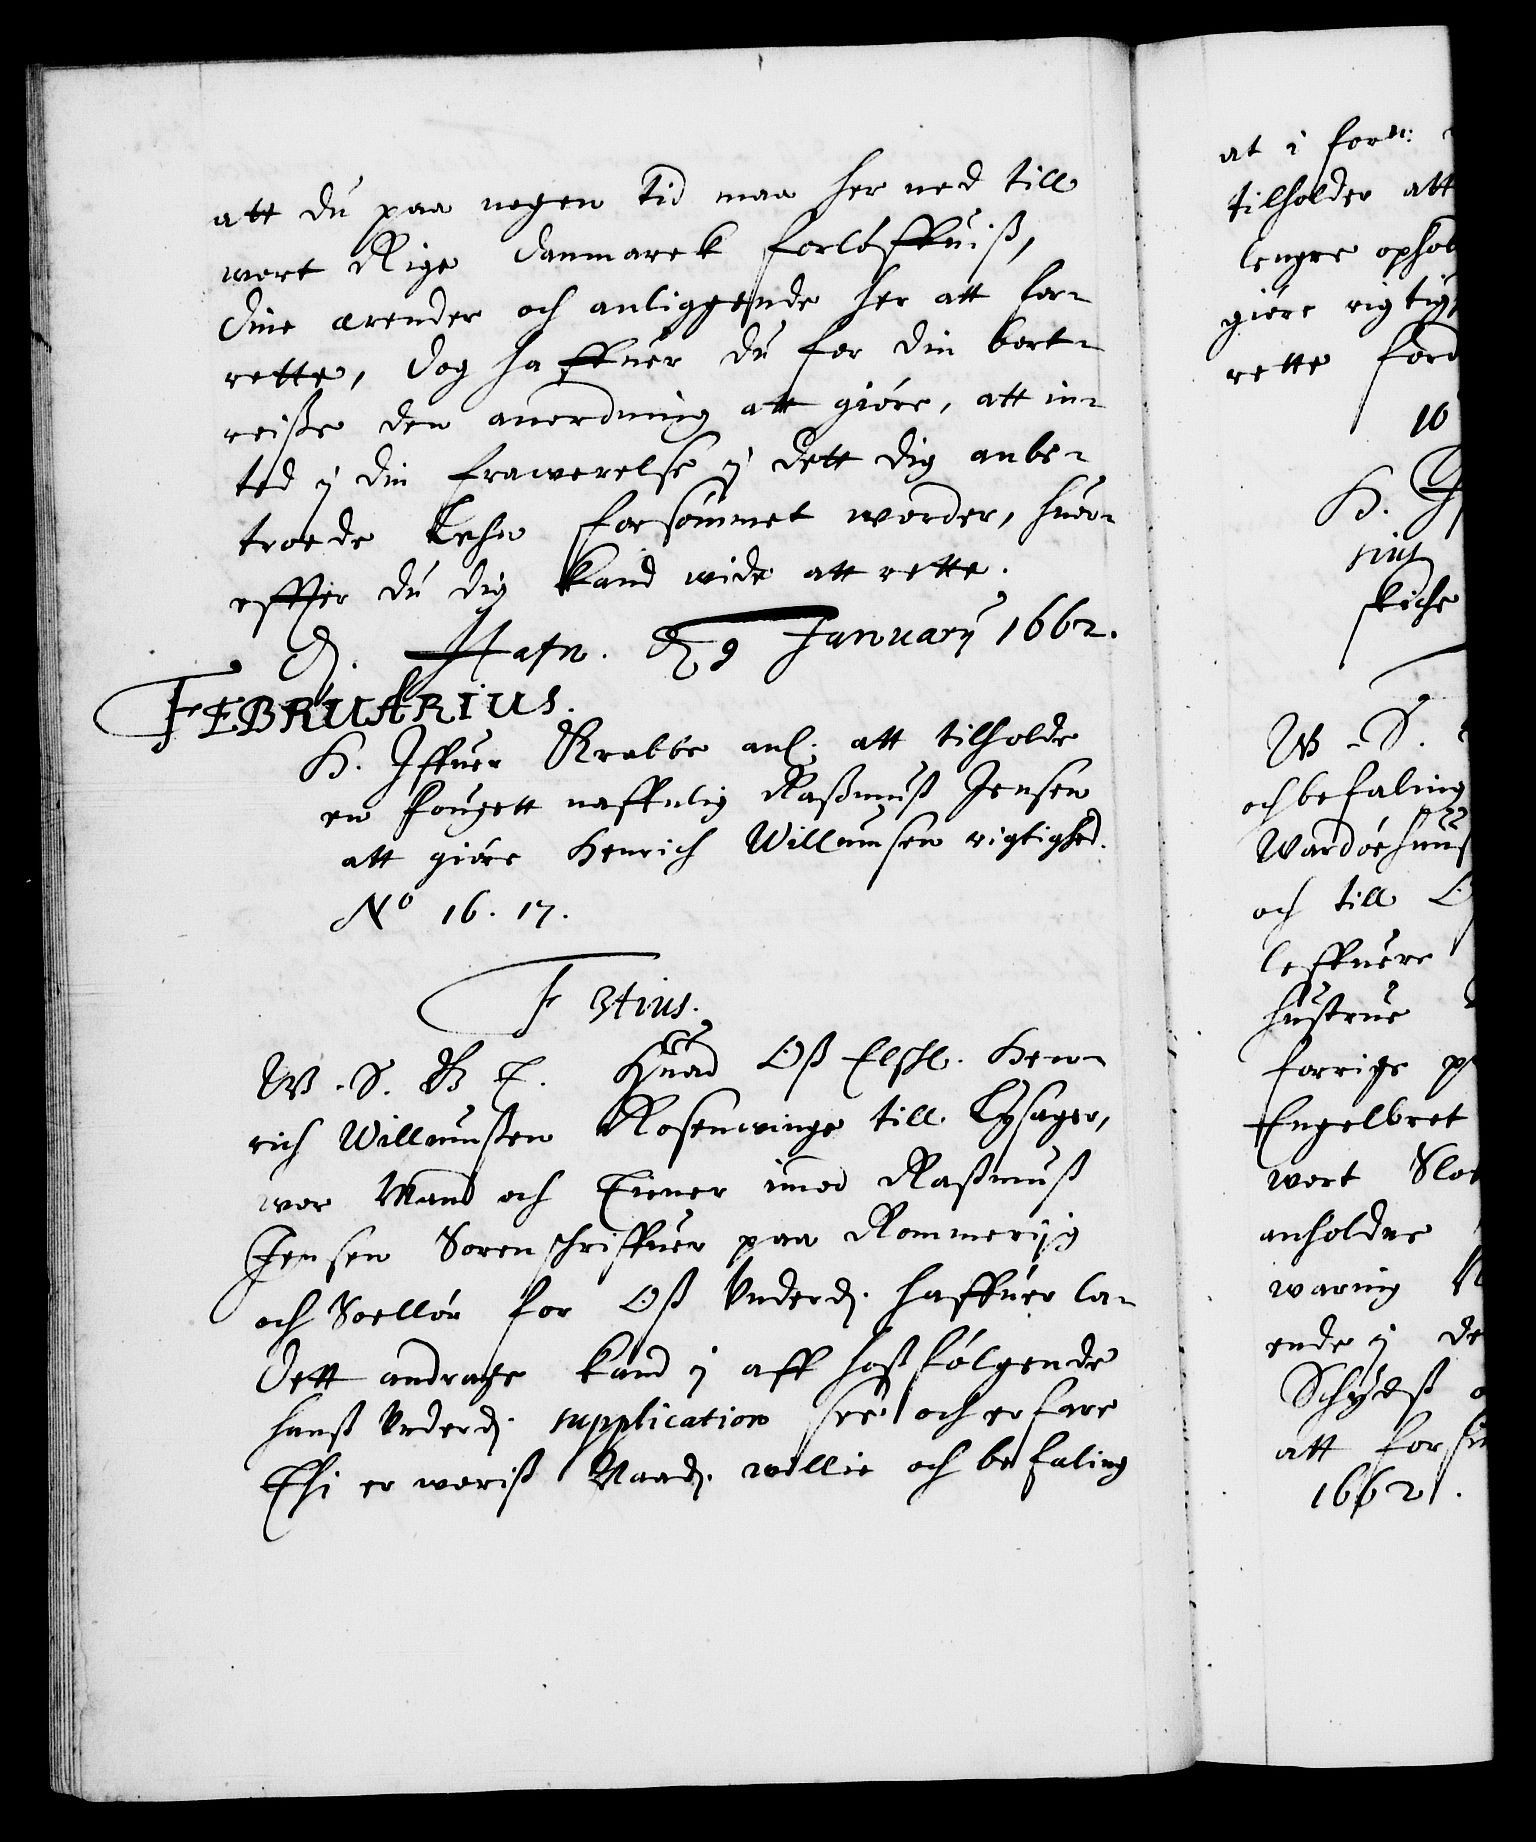 att du paa nogen tid maa her ned till
wort Rige Danmarck forlöffuiß,
dine ærender och anliggende her att for-
rette, dog haffuer du for din bort-
reiße den anordning att giöre, att in-
ted ij din frawerelse ij dett dig anbe-
troede Lehn forsömmet worder, huor-
effter du dig kand wide att rette.
Hafn. 9 January 1662.
FEBRUARIUS.
H. Iffuer Krabbe anl: att tilholde
en fougett naffnlig Raßmuß Jensen
att giöre Henrich Willumsen rigtighed.
No 16. 17.
F 3tius.
W. S. G T. Huad Oß Elschl. Hen-
rich Willumßen Rosenwinge till Lysager,
wor Mand och Tiener imod Raßmuß
Jensen Sorenschriffuer paa Rommeriig
och Soellör for Oß Underd. haffuer la-
dett andrage kand ij aff hoßfölgende
hanß Underd. supplication see och erfare
Thi er woriß Naad. willie och befaling
at i for:
tilholder att
lengre ophol
giöre rigtig
rette ford
16
H.
skiche
W. S.
och befaling
Wardöehuuß
och till
leffuere
hustrue
forrige
Engelbret
wort Slo
anholder
waring
ende ij de
Schydß
att for
1662.